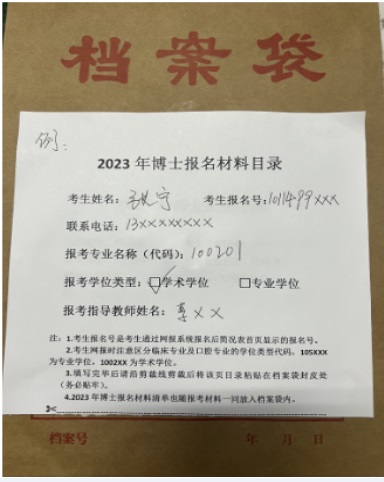 档案袋
例:
2023 年博士报名材料目录
考生姓名: 考生报名号:1011499XXX
联系电话:13XXXXXXXXX
报考专业名称(代码):100201
报考学位类型:☑学术学位 □专业学位
报考指导教师姓名: XX
注:1.考生报名号是考生通过网报系统报名后简况表首页显示的报名号。
2.考生网报时注意区分临床专业及口腔专业的学位类型代码,105XXX
为专业学位,1002XX 为学术学位。
3.填写完毕后请沿剪裁线剪裁后将该页目录粘贴在档案袋封皮处
(务必贴牢)。
4.2023 年博士报名材料清单也随报考材料一同放入档案袋内。
档案号 年 月 日